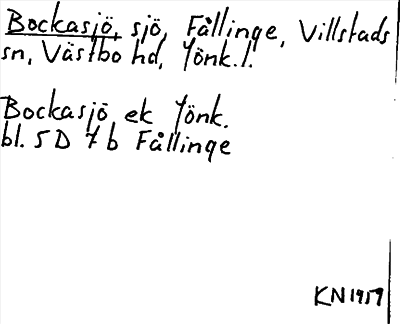 Bockasjö, sjö, Fållinge, Villstads
sn, Västbo hd, Jönk.l.
Bockasjö ek Jönk.
bl. 5D 7b Fållinge
KN1959